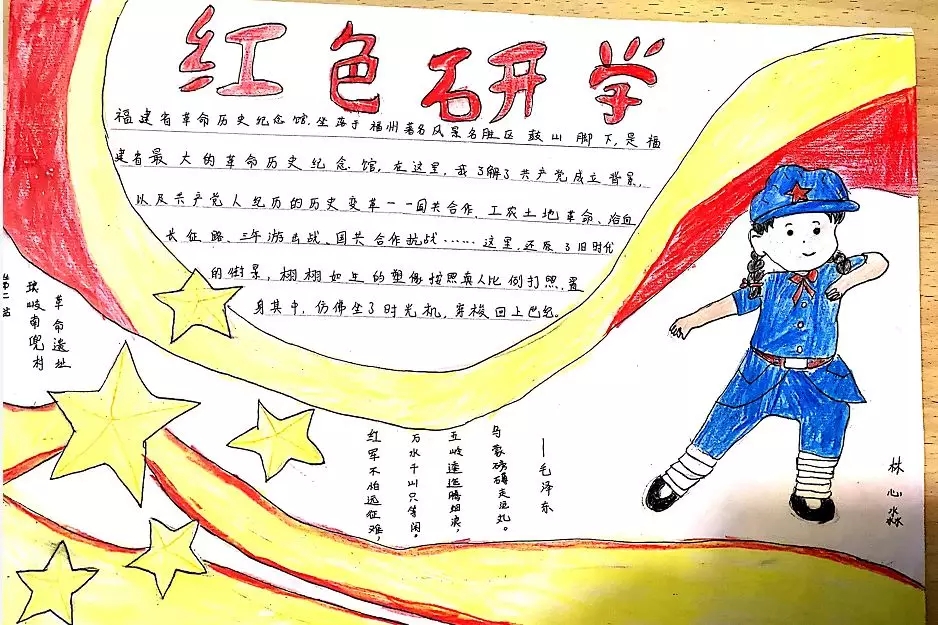 红色研学
福建省革命历史纪念馆.坐落于福州著名风景名胜区鼓山脚下,是福
建省最大的革命历史纪念馆,在这里,我了解了共产党成立背景,
以及共产党人经历的历史变革——国共合作、工农土地革命、浴血
长征路、三年游击战、国共合作抗战……这里,还原了旧时代
的街景,栩栩如生的塑像按照真人比例打照,置
身其中,仿佛坐了时光机,穿梭回上世纪。
第二站
琅岐南兜村
革命遗址
红军不怕远征难,
万水千山只等闲。
五岭逶迤腾细浪,
乌蒙磅礴走泥丸。
——毛泽东
林心淼